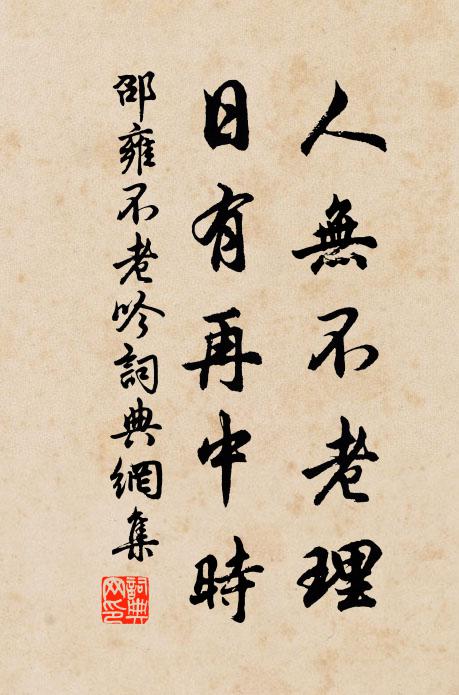 人無不老理
日有再中時
邵雍不老吟詞典網集
詞典網印